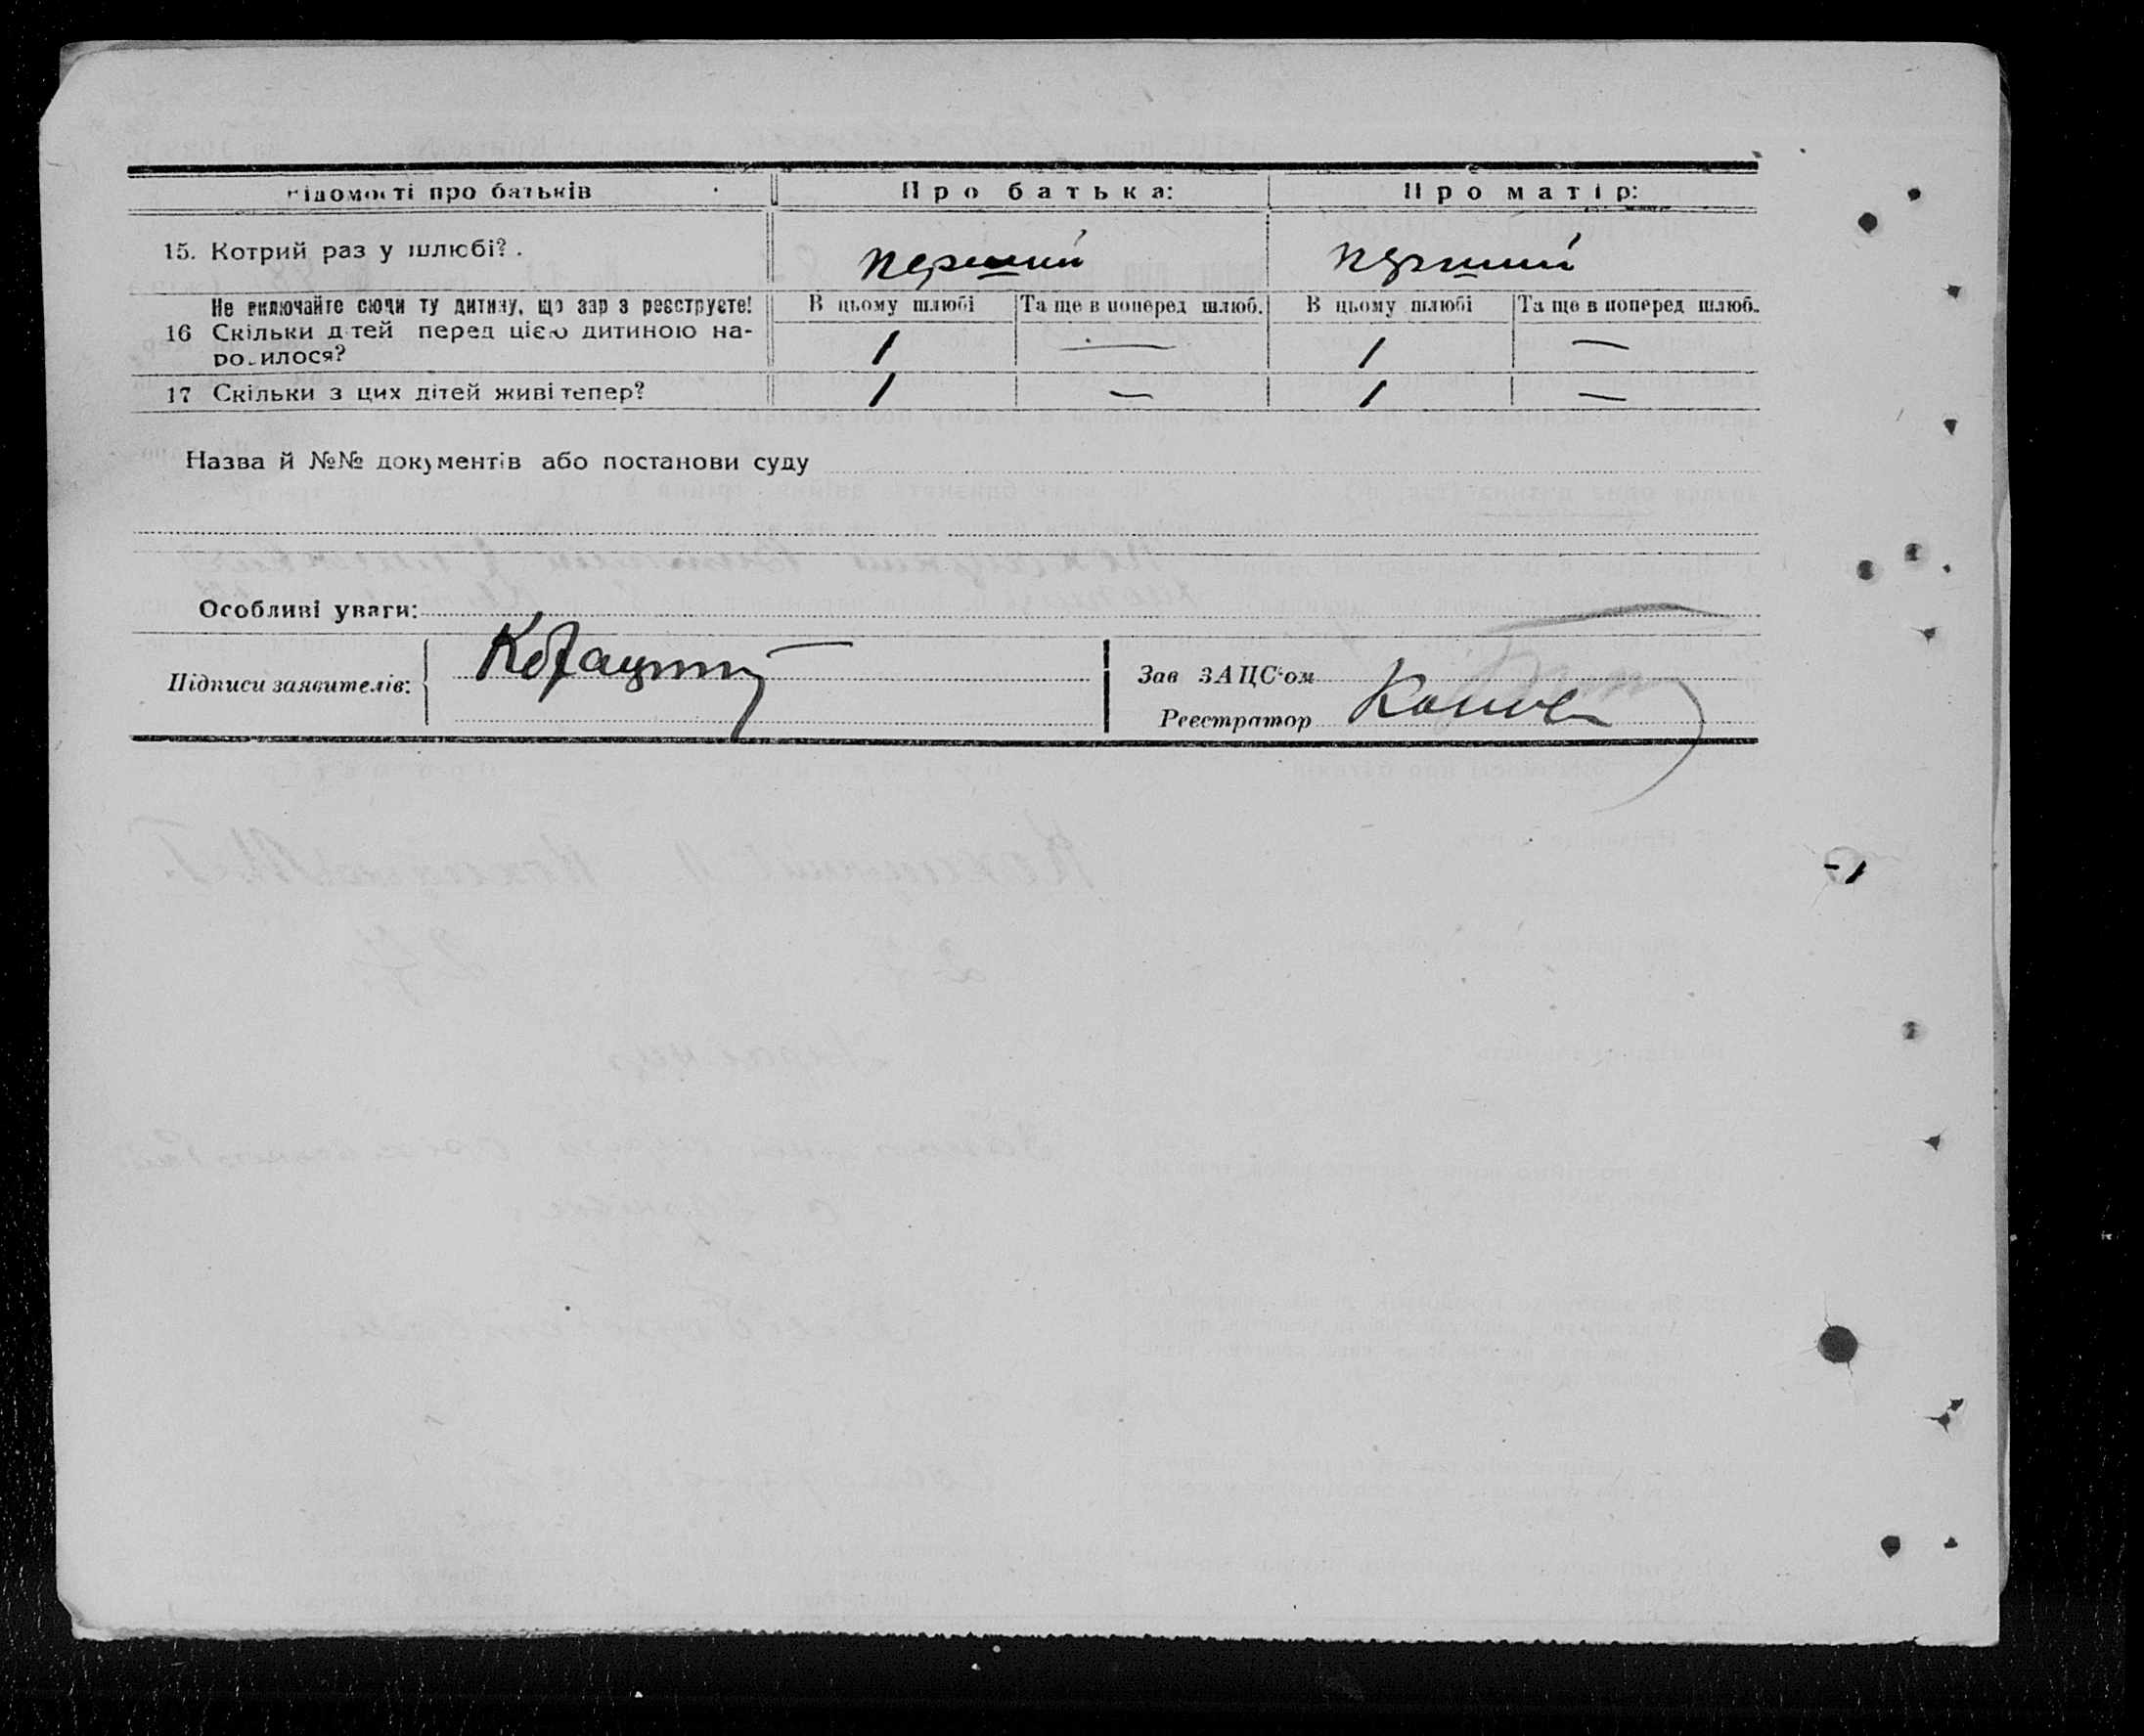 Відомості про батьків Про батька: Про матір:
15. Котрий раз у шлюбі? перший перший
Не включайте сюди ту дитину, що зар з реєструєте! В цьому шлюбі Та ще в поперед шлюб. В цьому шлюбі Та ще в поперед шлюб.
16 Скільки дітей перед цією дитиною на-
родилося? 1 — 1 —
17 Скільки з цих дітей живі тепер? 1 — 1 —
Назва й №№ документів або постанови суду
Особливі уваги:
Підписи заявителів: Зав ЗАЦС‘ом
Реєстратор